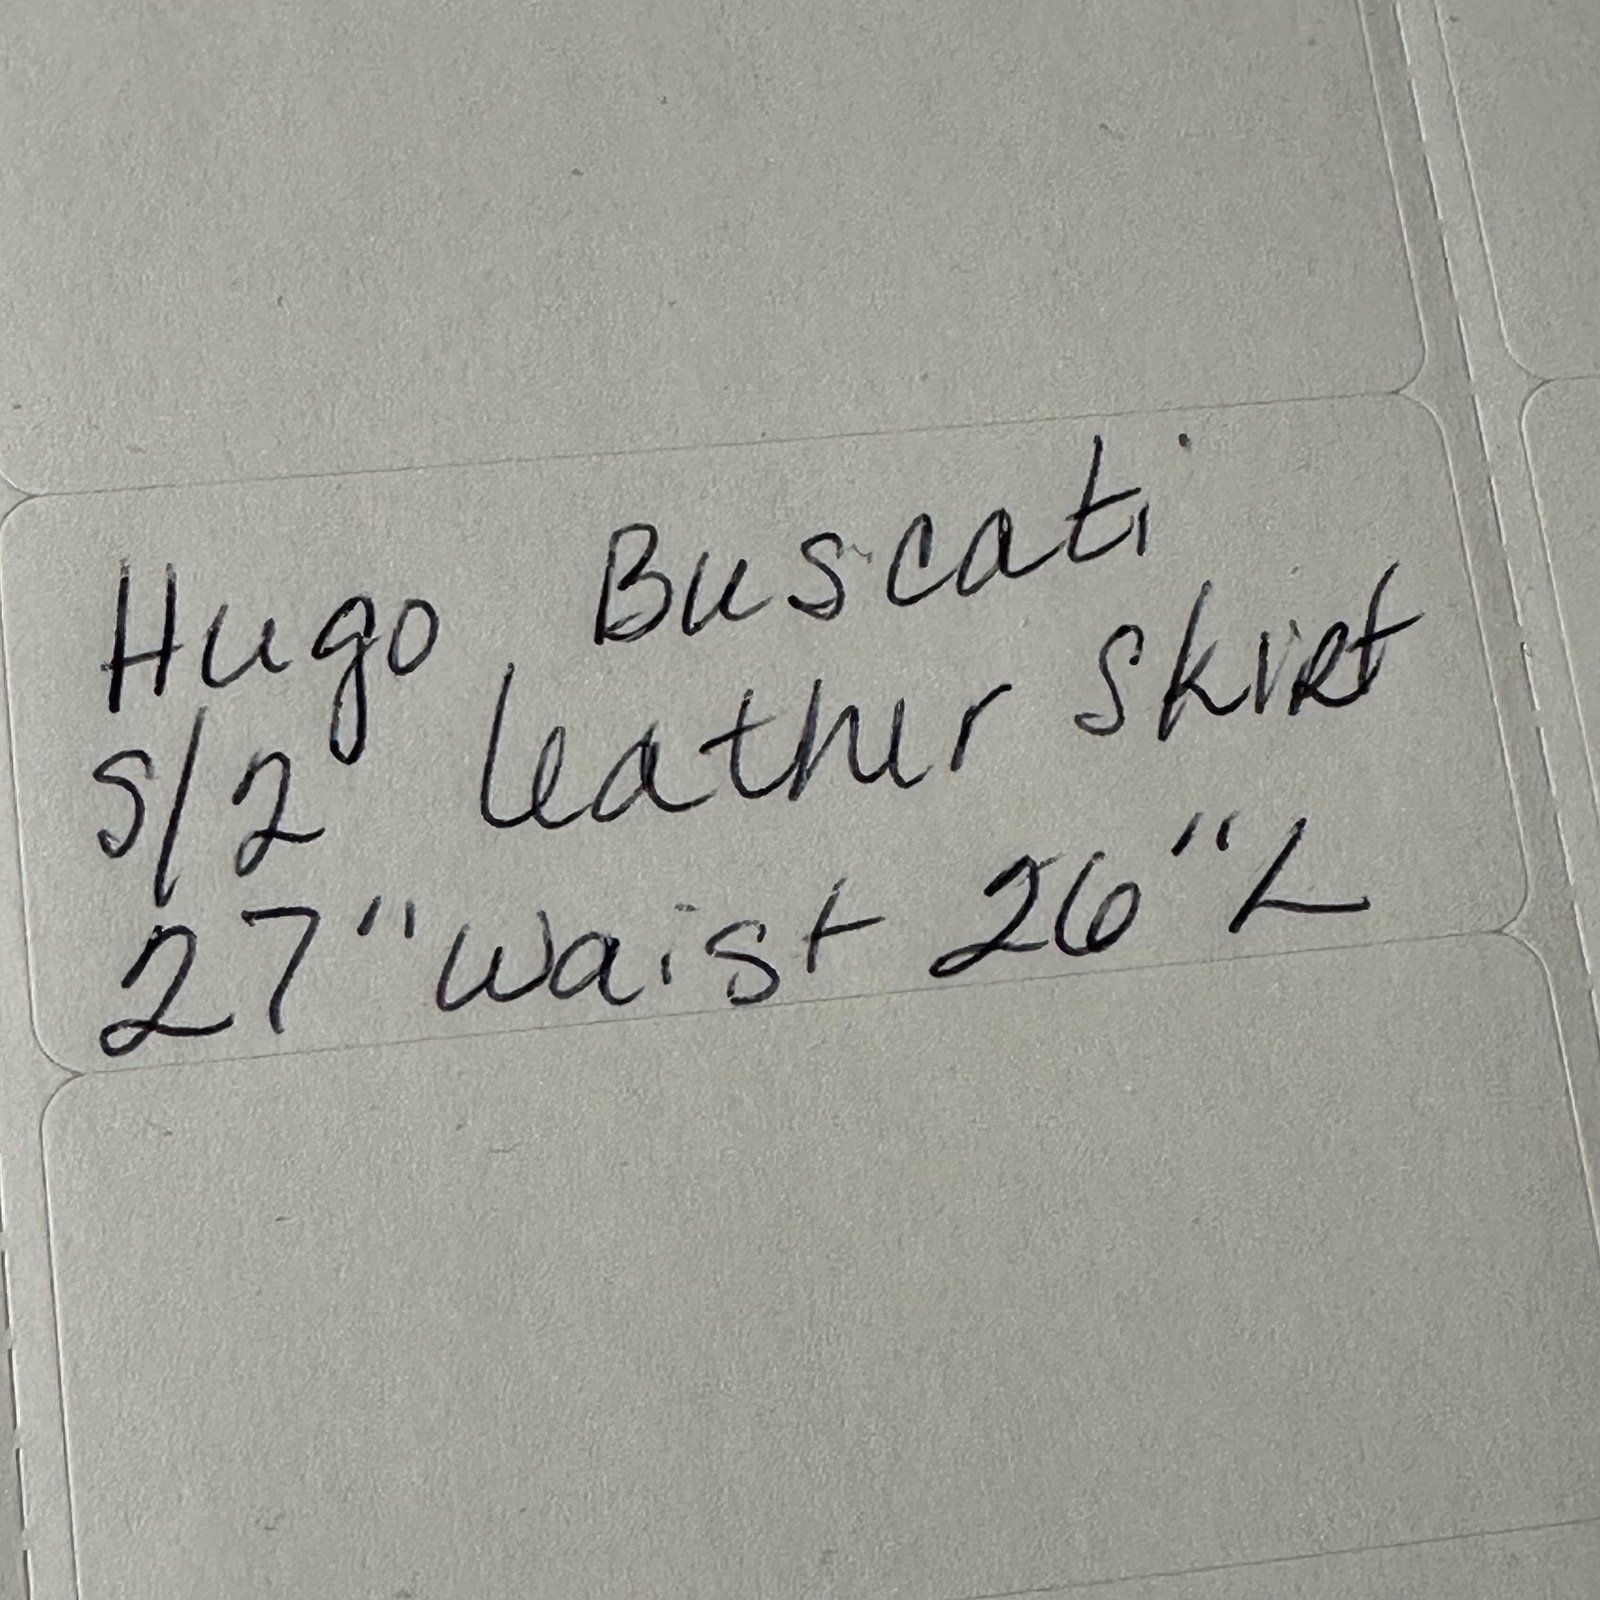 Hugo Buscati
S/2 leather skirt
27" waist 26" L